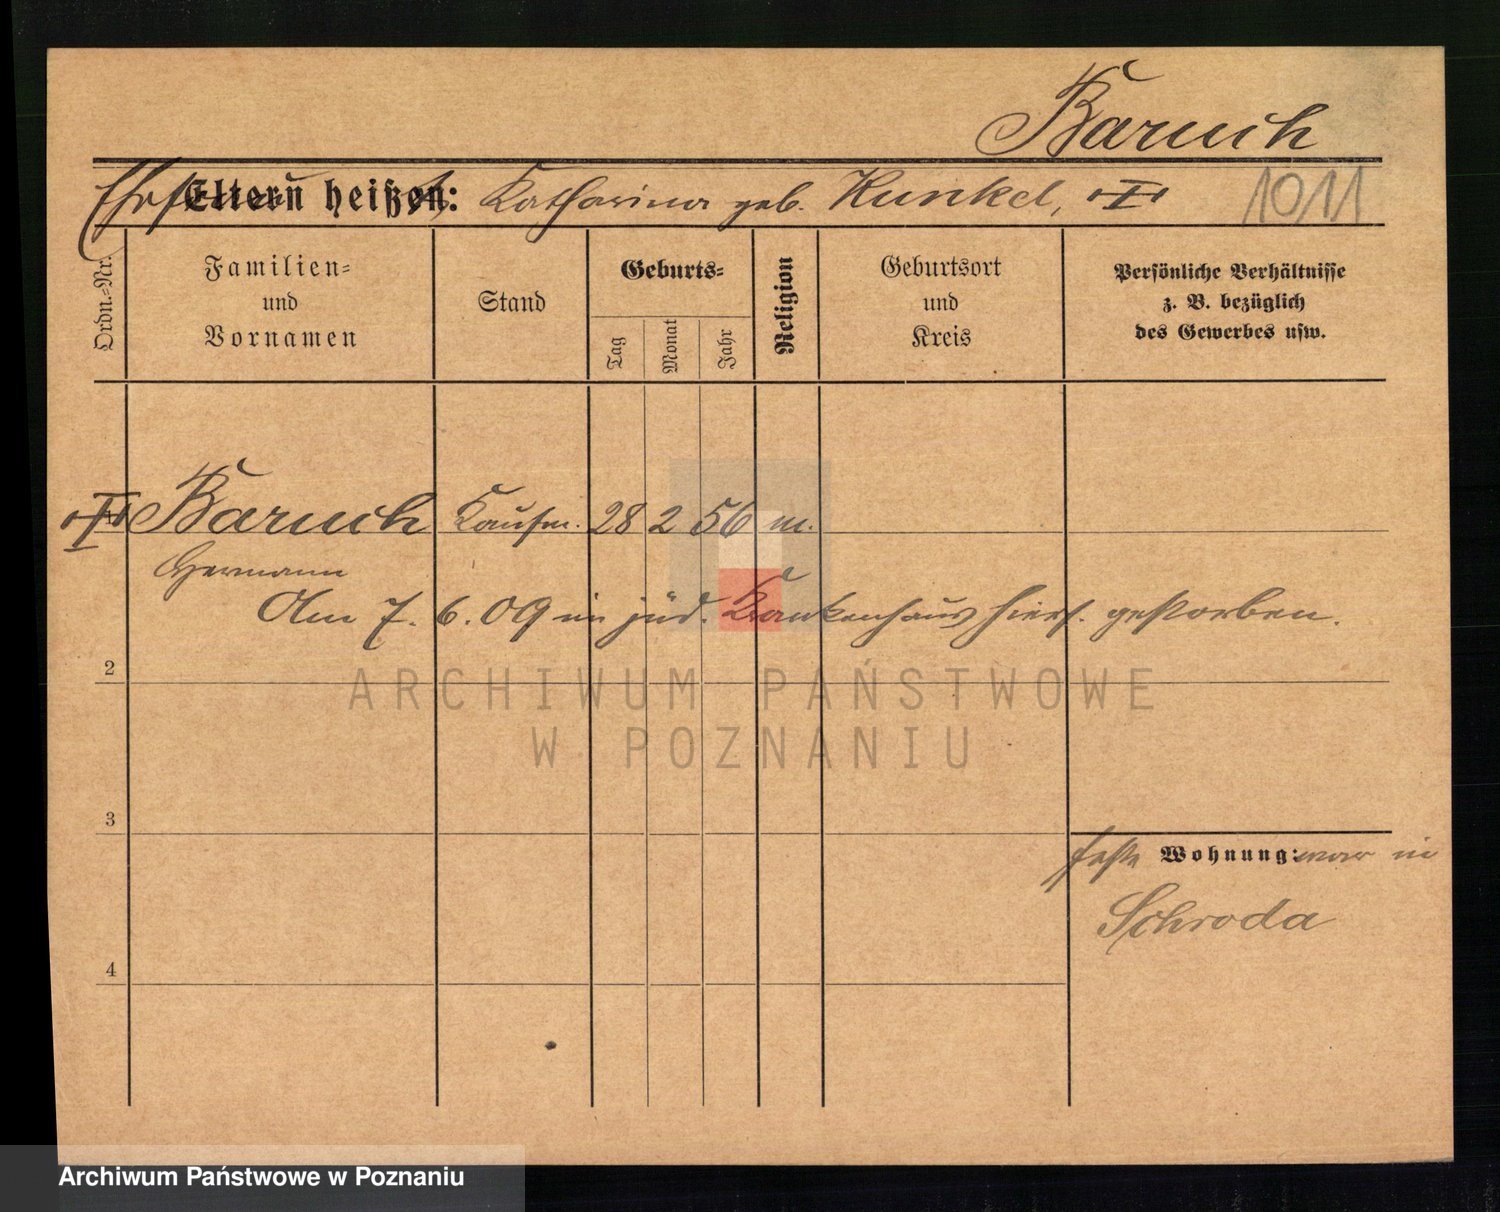 Baruch
Eltern heißen: Katharina geb. Kunkel, I 1011
Ordn.-Nr.
Familien-
und
Vornamen
Stand
Geburts-
Tag
Monat
Jahr
Religion
Geburtsort
und
Kreis
Persönliche Verhältnisse
z. B. bezüglich
des Gewerbes usw.
Baruch Kaufm. 28 2 56 m.
Hermann
Am 7. 6. 09 im jüd. Krankenhaus hiers. gestorben.
2
3
feste Wohnung: war in
Schroda
4
ARCHIWUM PAŃSTWOWE
W POZNANIU
Archiwum Państwowe w Poznaniu